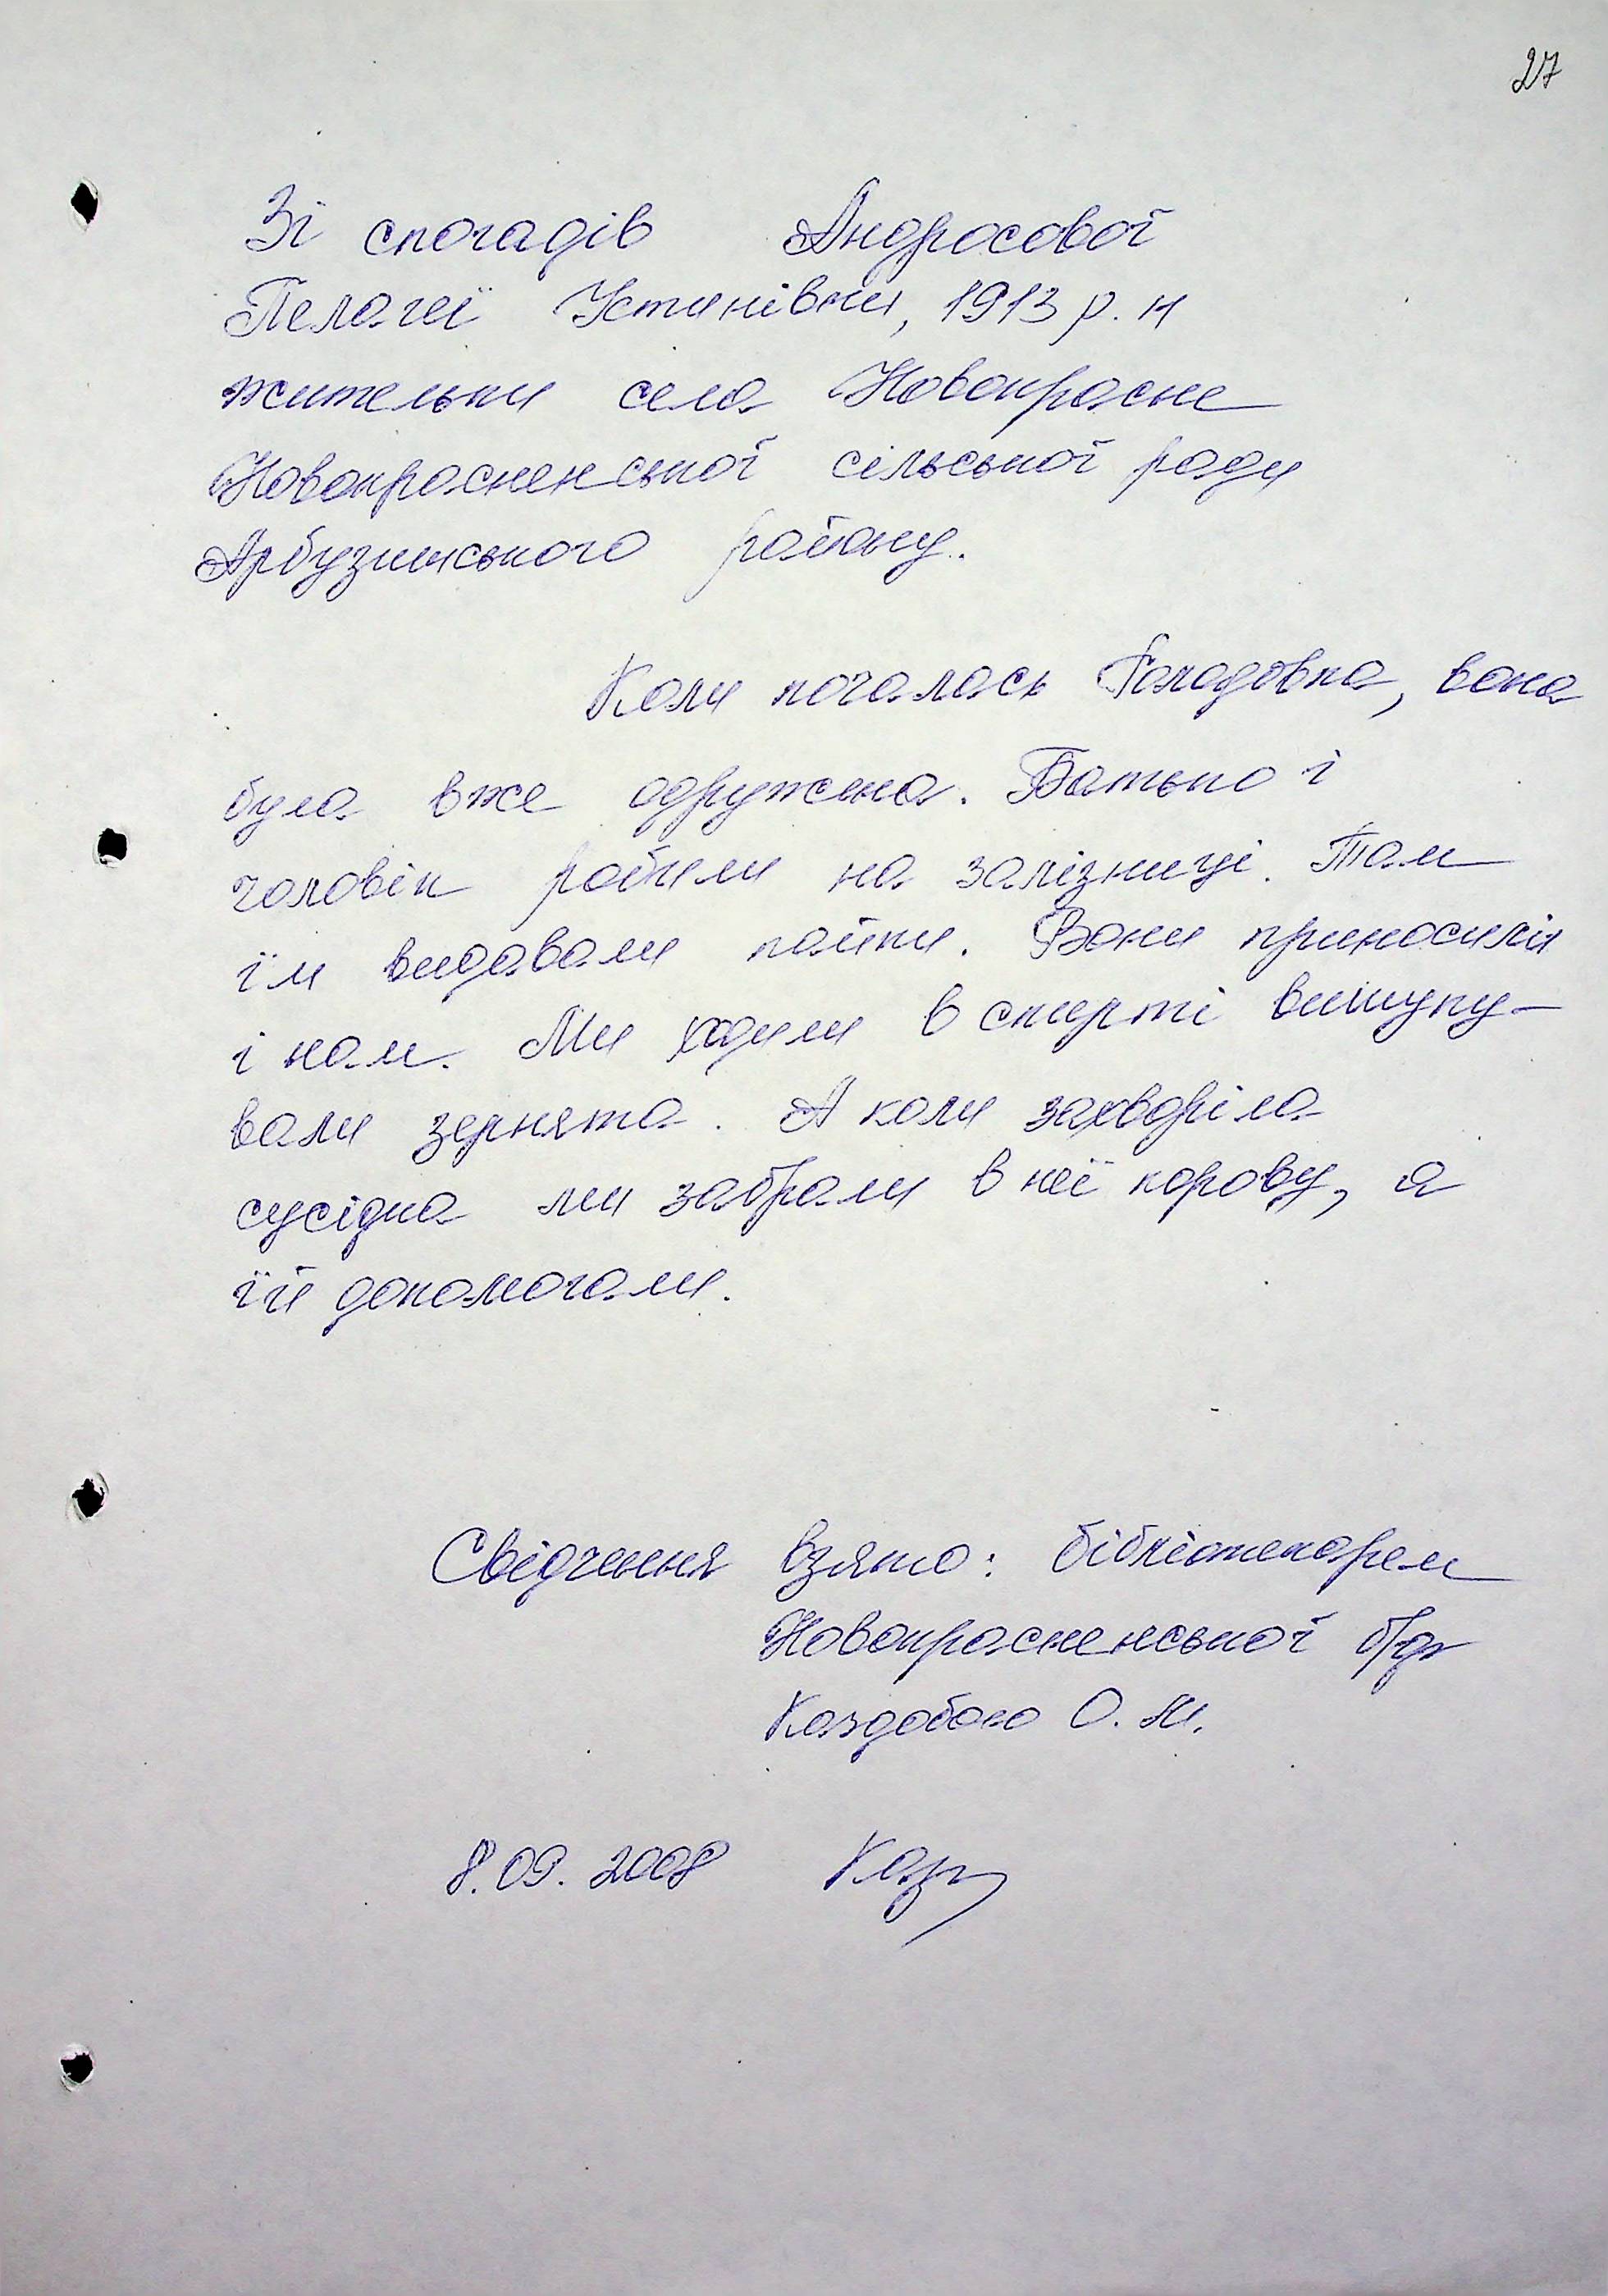 27
Зі спогадів Андросової
Пелагеї Устинівни, 1913 р. н
жительки села Новокрасне
Новокрасненської сільської ради
Арбузинського району.
Коли почалась Голодовка, вона
була вже одружена. Батько і
чоловік робили на залізниці. Там
їм видавали пайки. Вони приносили
і нам. Ми ходили в скирті вишуку-
вали зернята. А коли захворіла
сусідка ми забрали в неї корову, а
їй допомогали.
Свідчення взято: бібліотекарем
Новокрасненської б/ф
Каздобою О. М.
8.09.2008